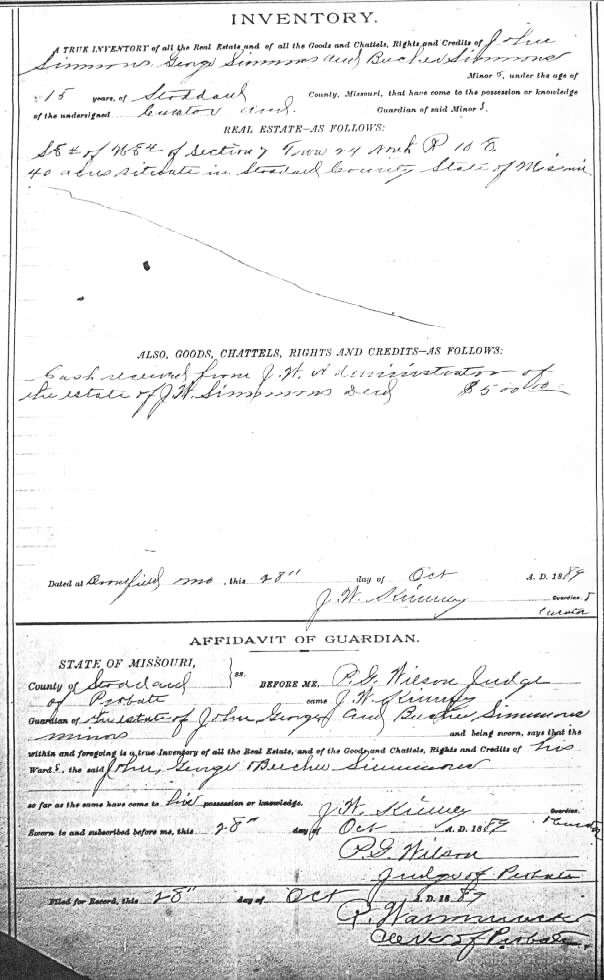 INVENTORY.
A TRUE INVENTORY of all the Real Estate and of all the Goods and Chattels, Rights and Credits of John
Simmons, George Simmons and Beecher Simmons
Minor s, under the age of
15 years, of Stoddard County, Missouri, that have come to the possession or knowledge
of the undersigned Curator and Guardian of said Minor s.
REAL ESTATE—AS FOLLOWS:
SE 4 of NE 4 of Section 7 Town 24 North R 10 E
40 acres situate in Stoddard County State of Missouri
ALSO, GOODS, CHATTELS, RIGHTS AND CREDITS—AS FOLLOWS:
Cash received from J. W. Administrator of
the estate of J W. Simmons Decd $500 00
Dated at Bloomfield Mo, this 28" day of Oct A. D. 1889
J. W. Kinney Guardian &
Curator
AFFIDAVIT OF GUARDIAN.
STATE OF MISSOURI,
County of Stoddard } ss. BEFORE ME, P. G. Wilson Judge
of Probate came J. W. Kinney
Guardian of the estate of John, George, and Beecher Simmons
minors and being sworn, says that the
within and foregoing is a true Inventory of all the Real Estate, and of the Goods and Chattels, Rights and Credits of his
Ward s, the said John, George & Beecher Simmons
so far as the same have come to his possession or knowledge.
J. W. Kinney Guardian
Sworn to and subscribed before me, this 28" day of Oct A. D. 1889 Curator
P. G. Wilson
Judge of Probate
Filed for Record, this 28" day of Oct A. D. 1889
Clerk of Probate